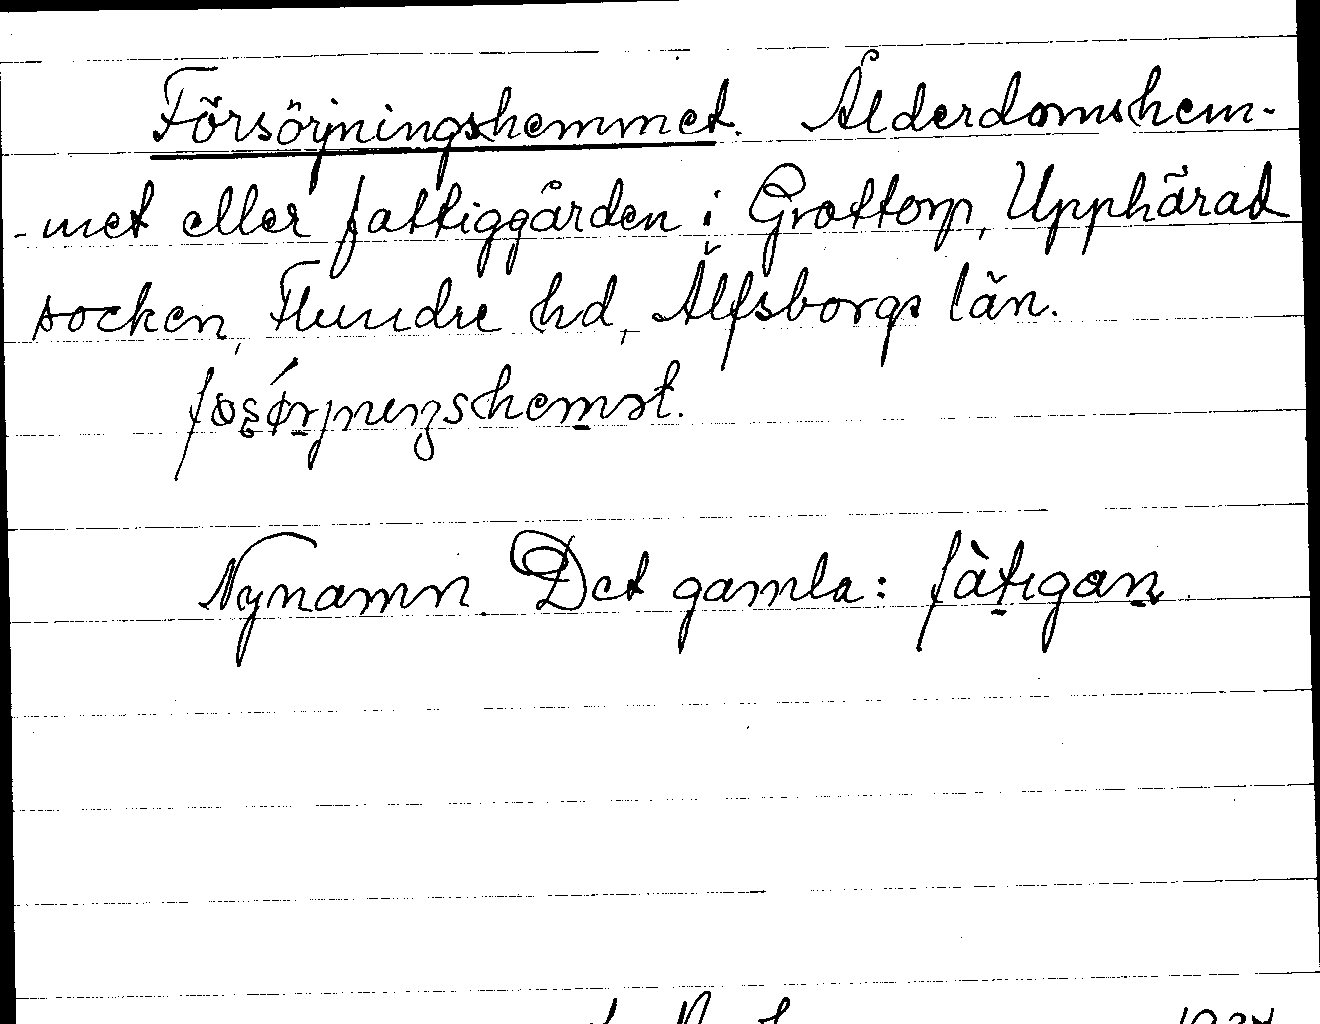 Försörjningshemmet. Ålderdomshem-
-met eller fattiggården i Grottorp, Upphärad
socken, Flundre hd, Älfsborgs län.
Nynamn. Det gamla: fàtigan